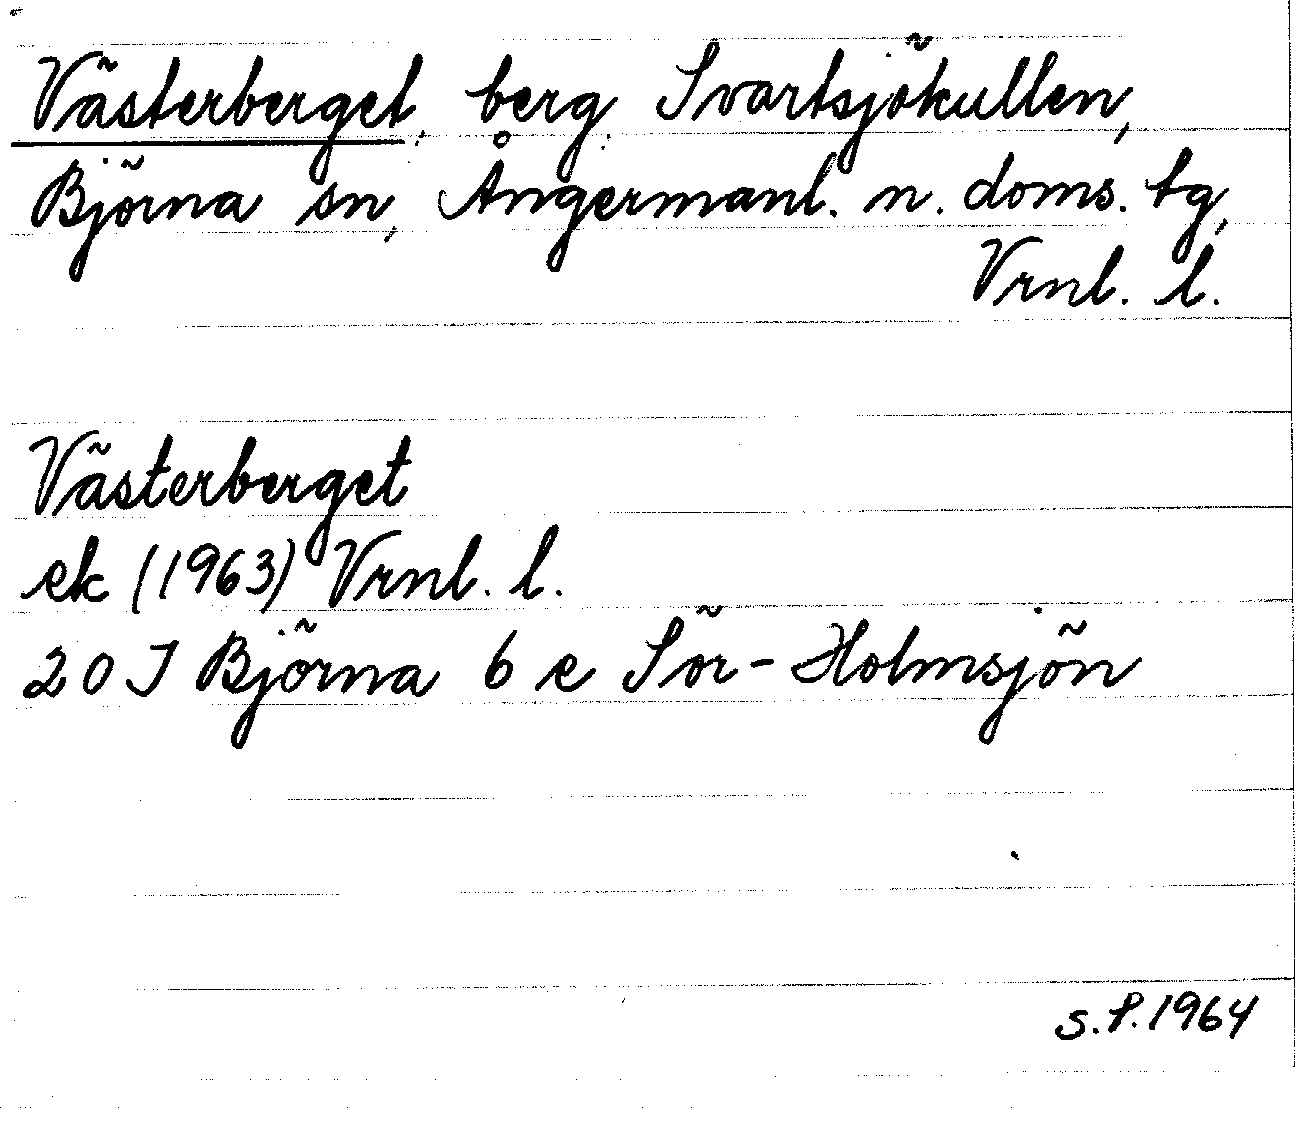 Västerberget, berg, Svartsjökullen,
Björna sn, Ångermanl. n. doms. tg,
Vrnl. l.
Västerberget
ek (1963) Vrnl. l.
20 J Björna 6 e Sör-Holmsjön
S.P. 1964